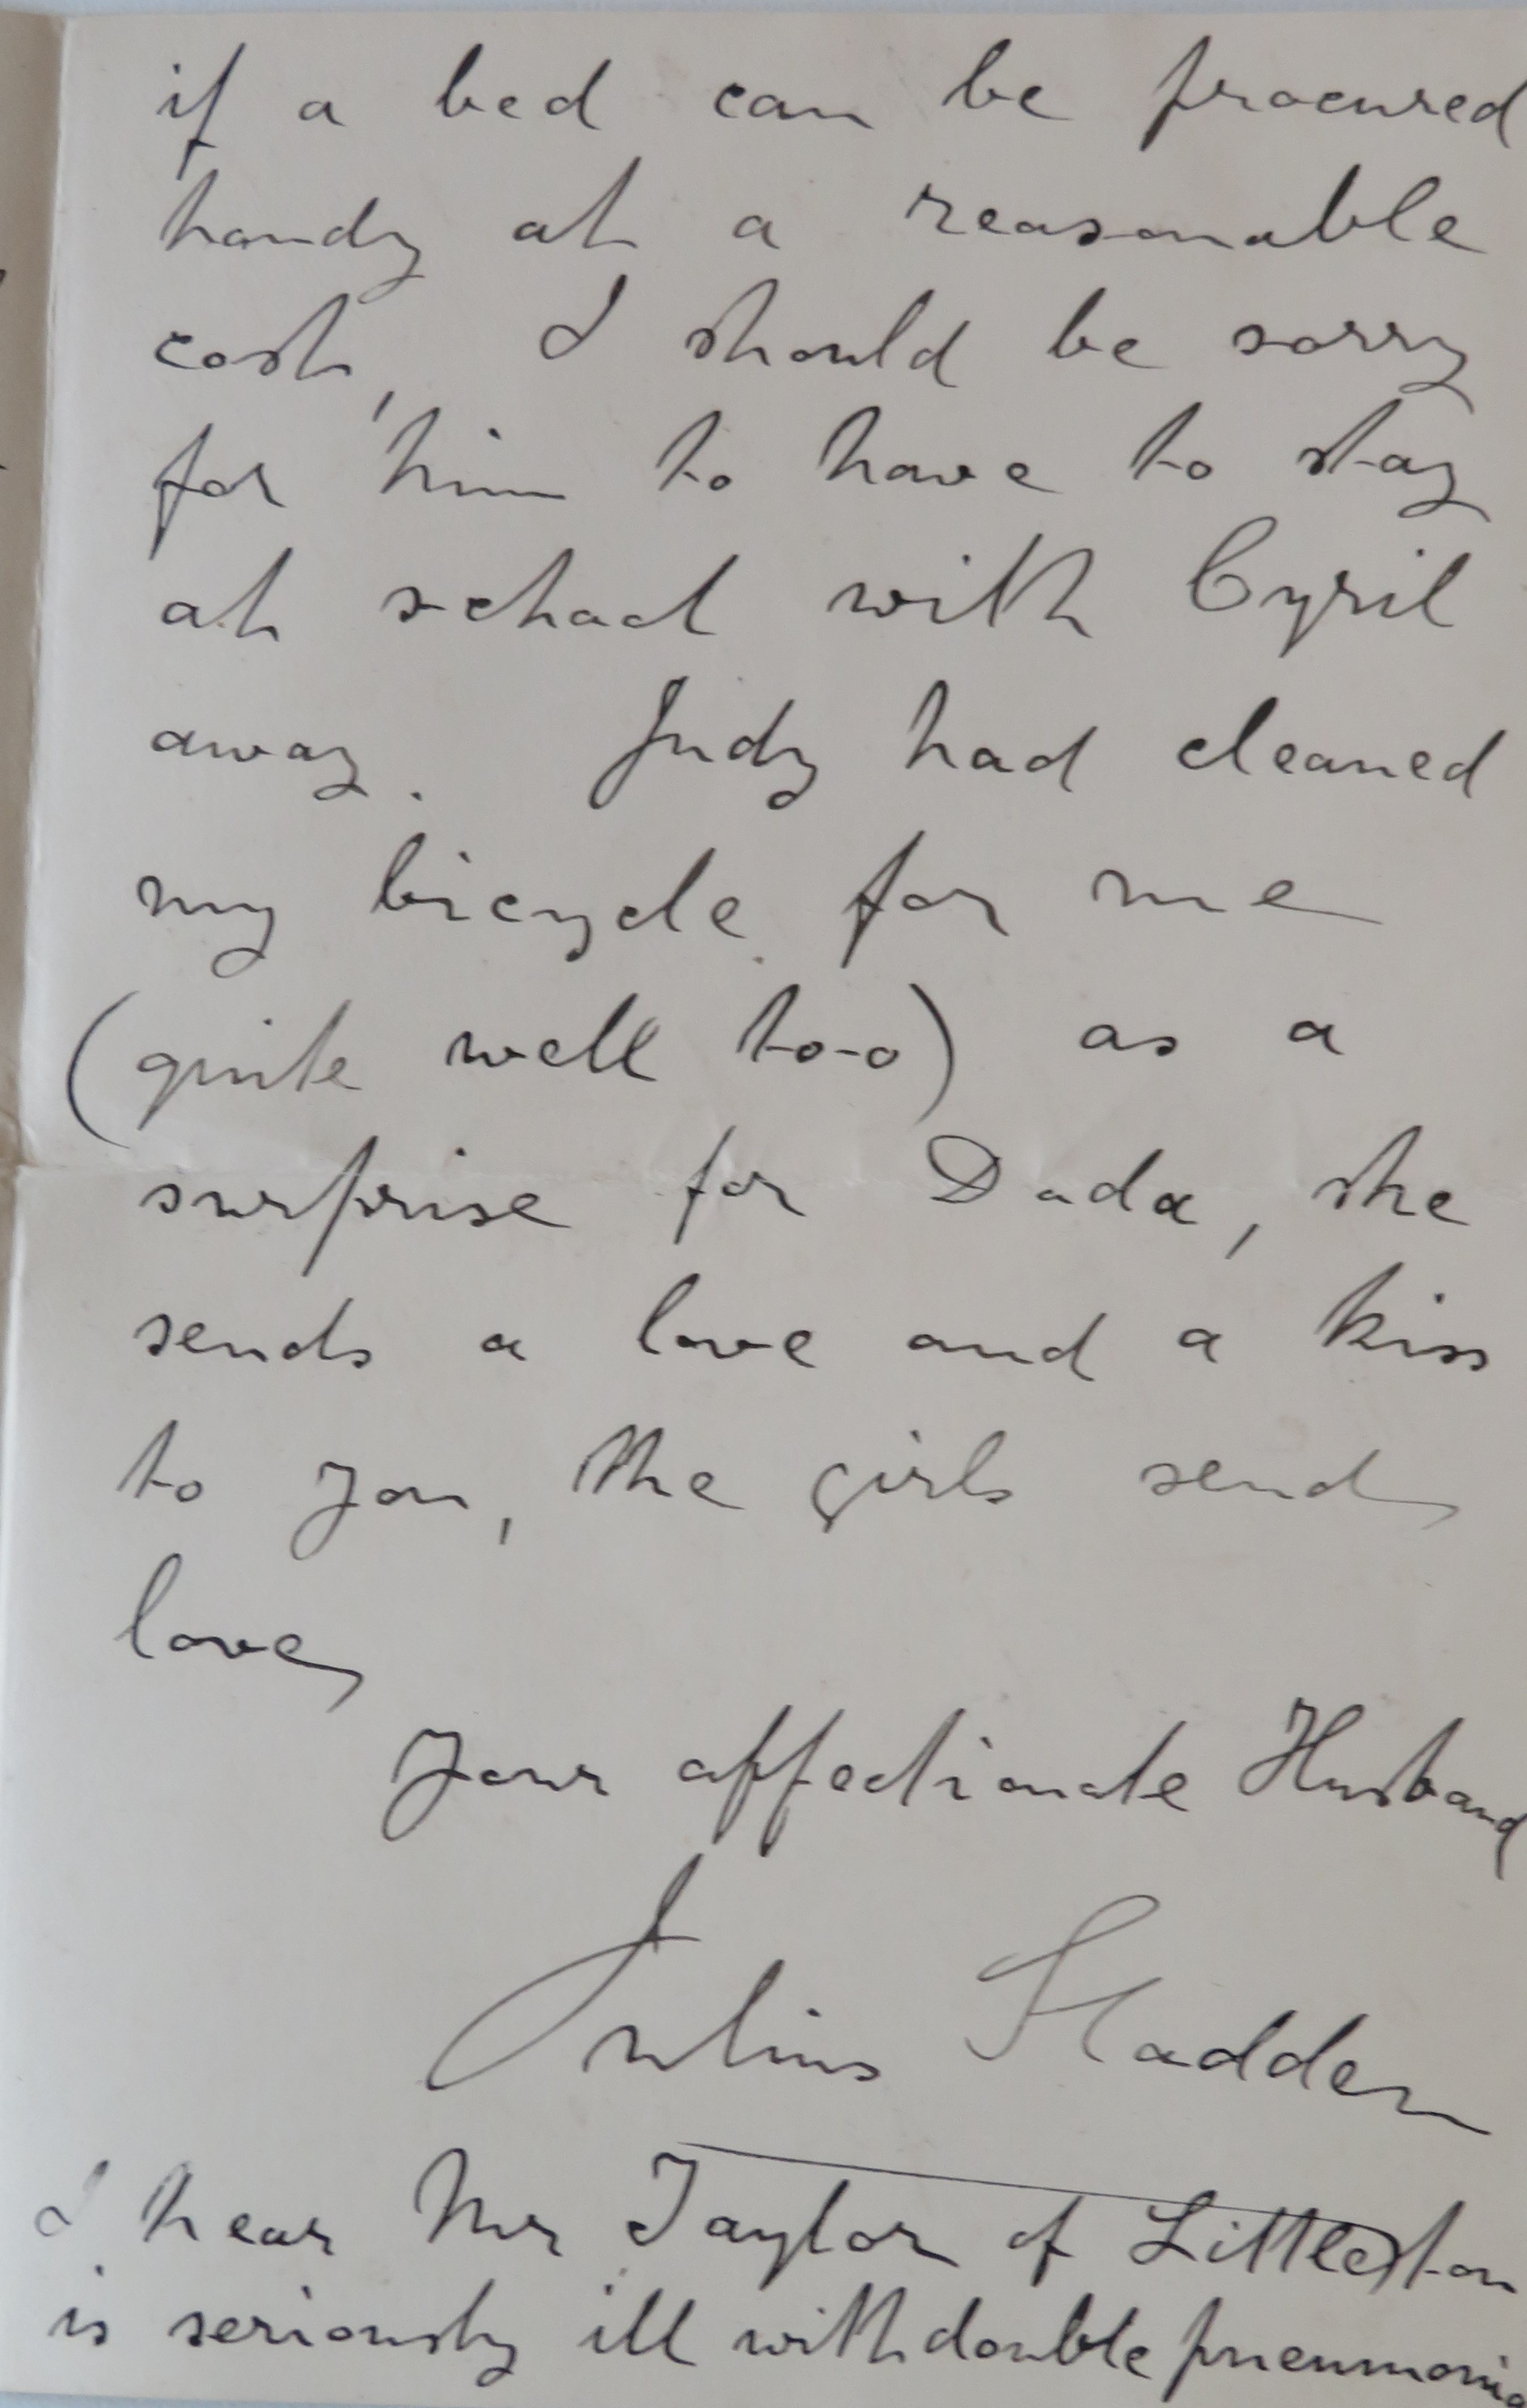 if a bed can be procured
handy at a reasonable
cost, I should be sorry
for him to have to stay
at school with Cyril
away. Judy had cleaned
my bicycle for me
(quite well too) as a
surprise for Dada, she
sends a love and a kiss
to you, the girls send
love,
Your affectionate Husband
Julius Hadden
I hear Mr Taylor of Littleston
is seriously ill with double pneumonia